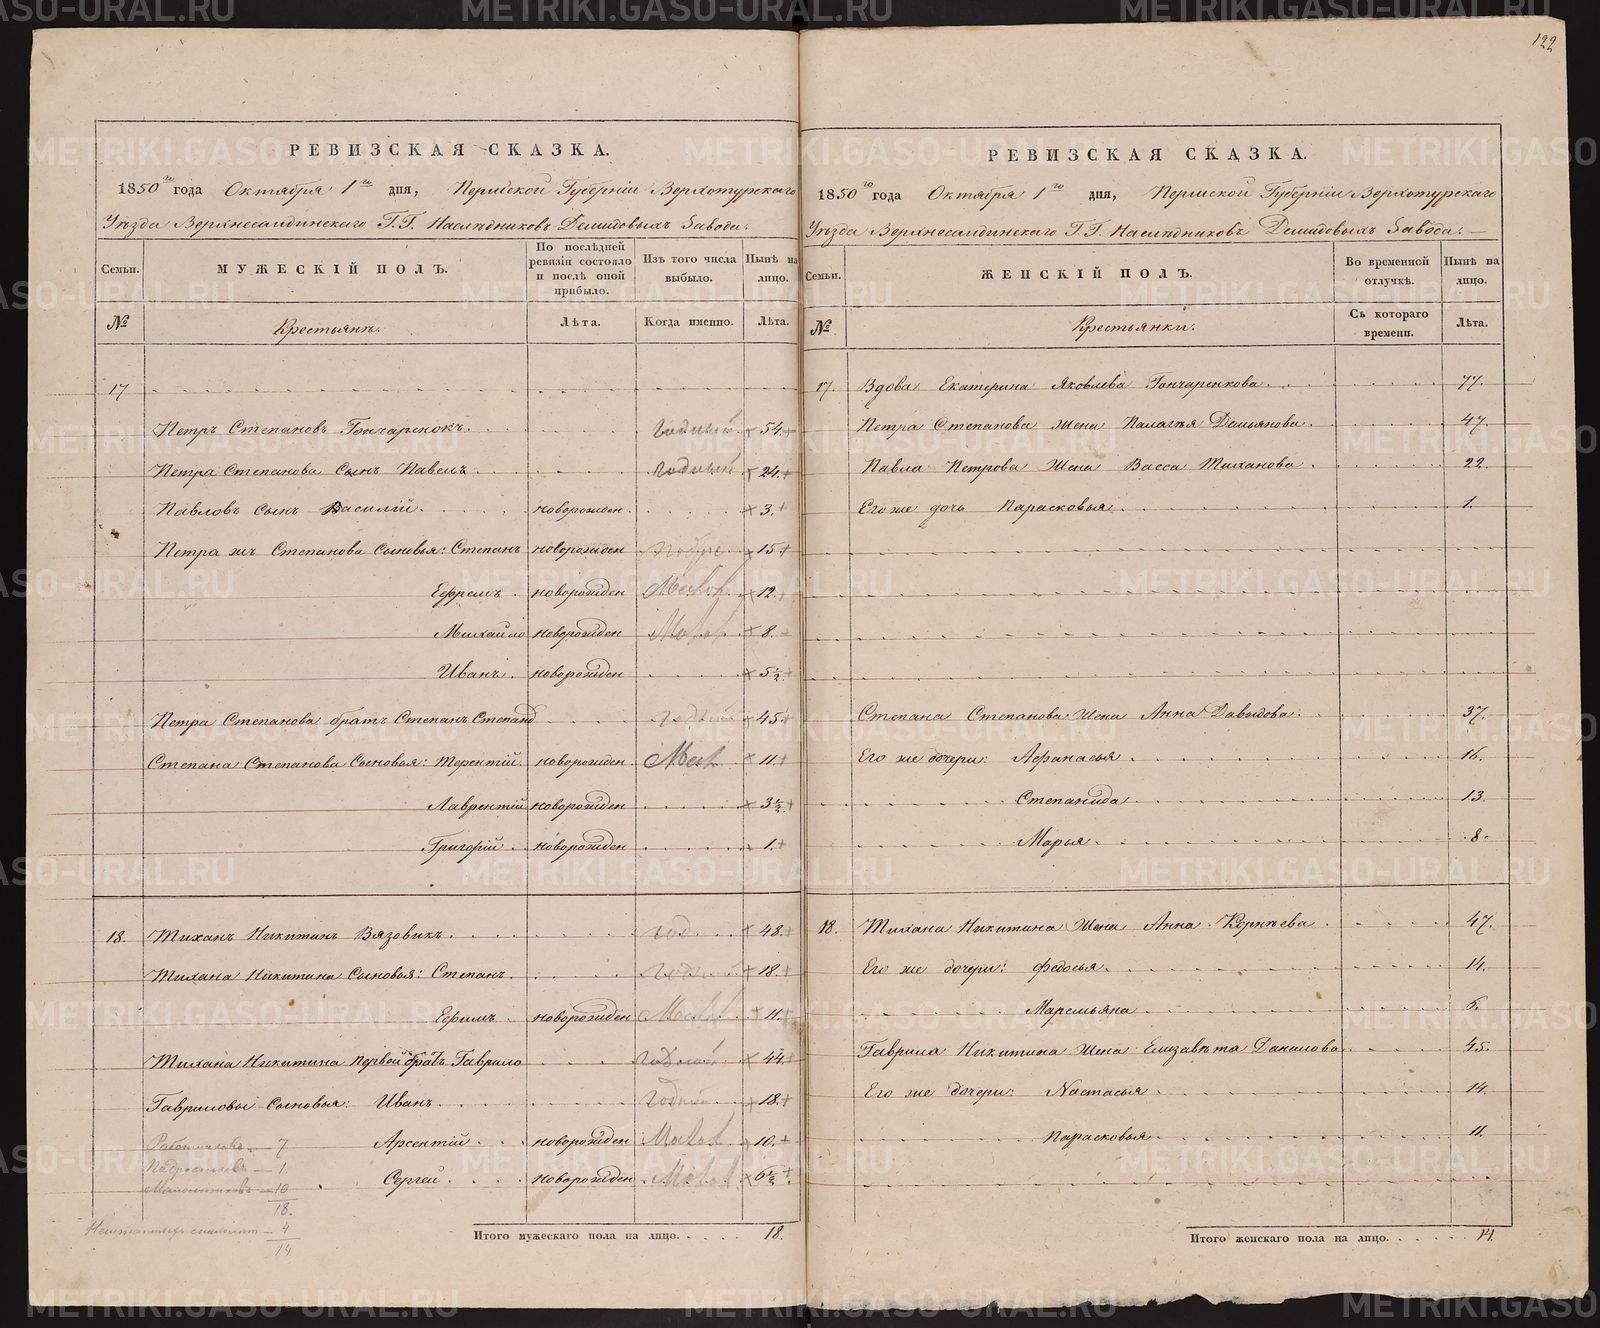 122
РЕВИЗСКАЯ СКАЗКА.
1850го года Октября 1го дня, Пермской Губернiи Верхотурскаго
Уѣзда Верхнесалдинскаго Г.Г. Наслѣдниковъ Демидовыхъ Завода.
Семьи. МУЖЕСКIЙ ПОЛЪ. По послѣдней ревизiи состояло и послѣ оной прибыло. Изъ того числа выбыло. Нынѣ на лицо.
№ Крестьянъ. Лѣта. Когда именно. Лѣта.
17
Петръ Степановъ Гончаренокъ. Годный 54.
Петра Степанова Сынъ Павелъ Годный 24.
Павловъ Сынъ Василiй. новорожден 3.
Петра жъ Степанова Сыновья: Степанъ новорожден Подро 15
Ефремъ. новорожден Малол 12.
Михайло новорожден Малол 8.
Иванъ. новорожден 5½.
Петра Степанова братъ Степанъ Степанов Годный 45
Степана Степанова Сыновья: Терентiй. новорожден. Мал 11
Лаврентiй новорожден 3½.
Григорiй. новорожден 1.
18. Тиханъ Никитинъ Вязовикъ. год 48.
Тихана Никитина Сыновья: Степанъ. Годный 18.
Ефимъ. новорожден Малол 11.
Тихана Никитина первой братъ Гаврило Годный 44
Гавриловы Сыновья: Иванъ. Годный 18.
Арсентiй новорожден Малол 10.
Сергей новорожден Малол 6½.
Работниковъ — 7
Подростковъ — 1.
Малолетковъ — 10
18.
— 4
14
Итого мужескаго пола на лицо. 18.
РЕВИЗСКАЯ СКАЗКА.
1850го года Октября 1го дня, Пермской Губернiи Верхотурскаго
Уѣзда Верхнесалдинскаго Г.Г. Наслѣдниковъ Демидовыхъ Завода. —
Семьи. ЖЕНСКIЙ ПОЛЪ. Во временной отлучкѣ. Нынѣ на лицо.
№ Крестьянки. Съ котораго времени. Лѣта.
17. Вдова Екатерина Яковлева Гончаренкова. 77.
Петра Степанова Жена Палагѣя Демьянова. 47.
Павла Петрова Жена Васса Тиханова. 22.
Его же дочь Парасковья 1.
Степана Степанова Жена Анна Давыдова. 37.
Его же дочери: Афанасья 16.
Степанида 13.
Марья. 8.
18. Тихана Никитина Жена Анна Корнѣева 47.
Его же дочери: Федосья. 14.
Маремьяна 6.
Гаврила Никитина Жена Елизавѣта Данилова 45.
Его же дочери: Настасья 14.
Парасковья 11.
Итого женскаго пола на лицо. 14.
METRIKI.GASO-URAL.RU